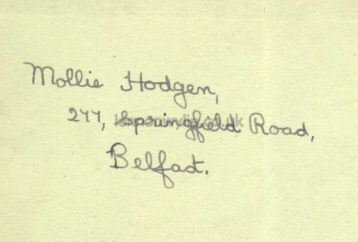 Mollie Hodgen,
277, Springfield Road,
Belfast.